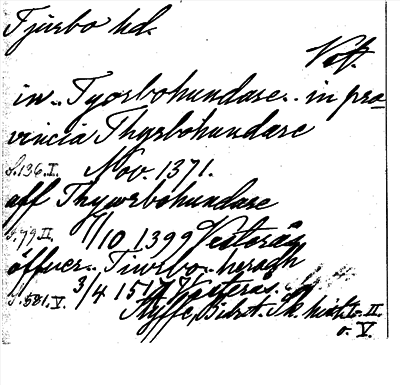 Tjurbo hd.
Vstm.
in.. Tyorbohundare.. in pro=
vincia Thyrbohundare
S.136.I. Nov. 1371.
aff Thywrbohundare
S.79.II. 1/10 1399 Vesterås
öffuer.. Tiurbo heradh
S.581.V. 3/4 1517 Västerås.
Styffe, Bidrt. Sk. hist. I. II.
o. V.